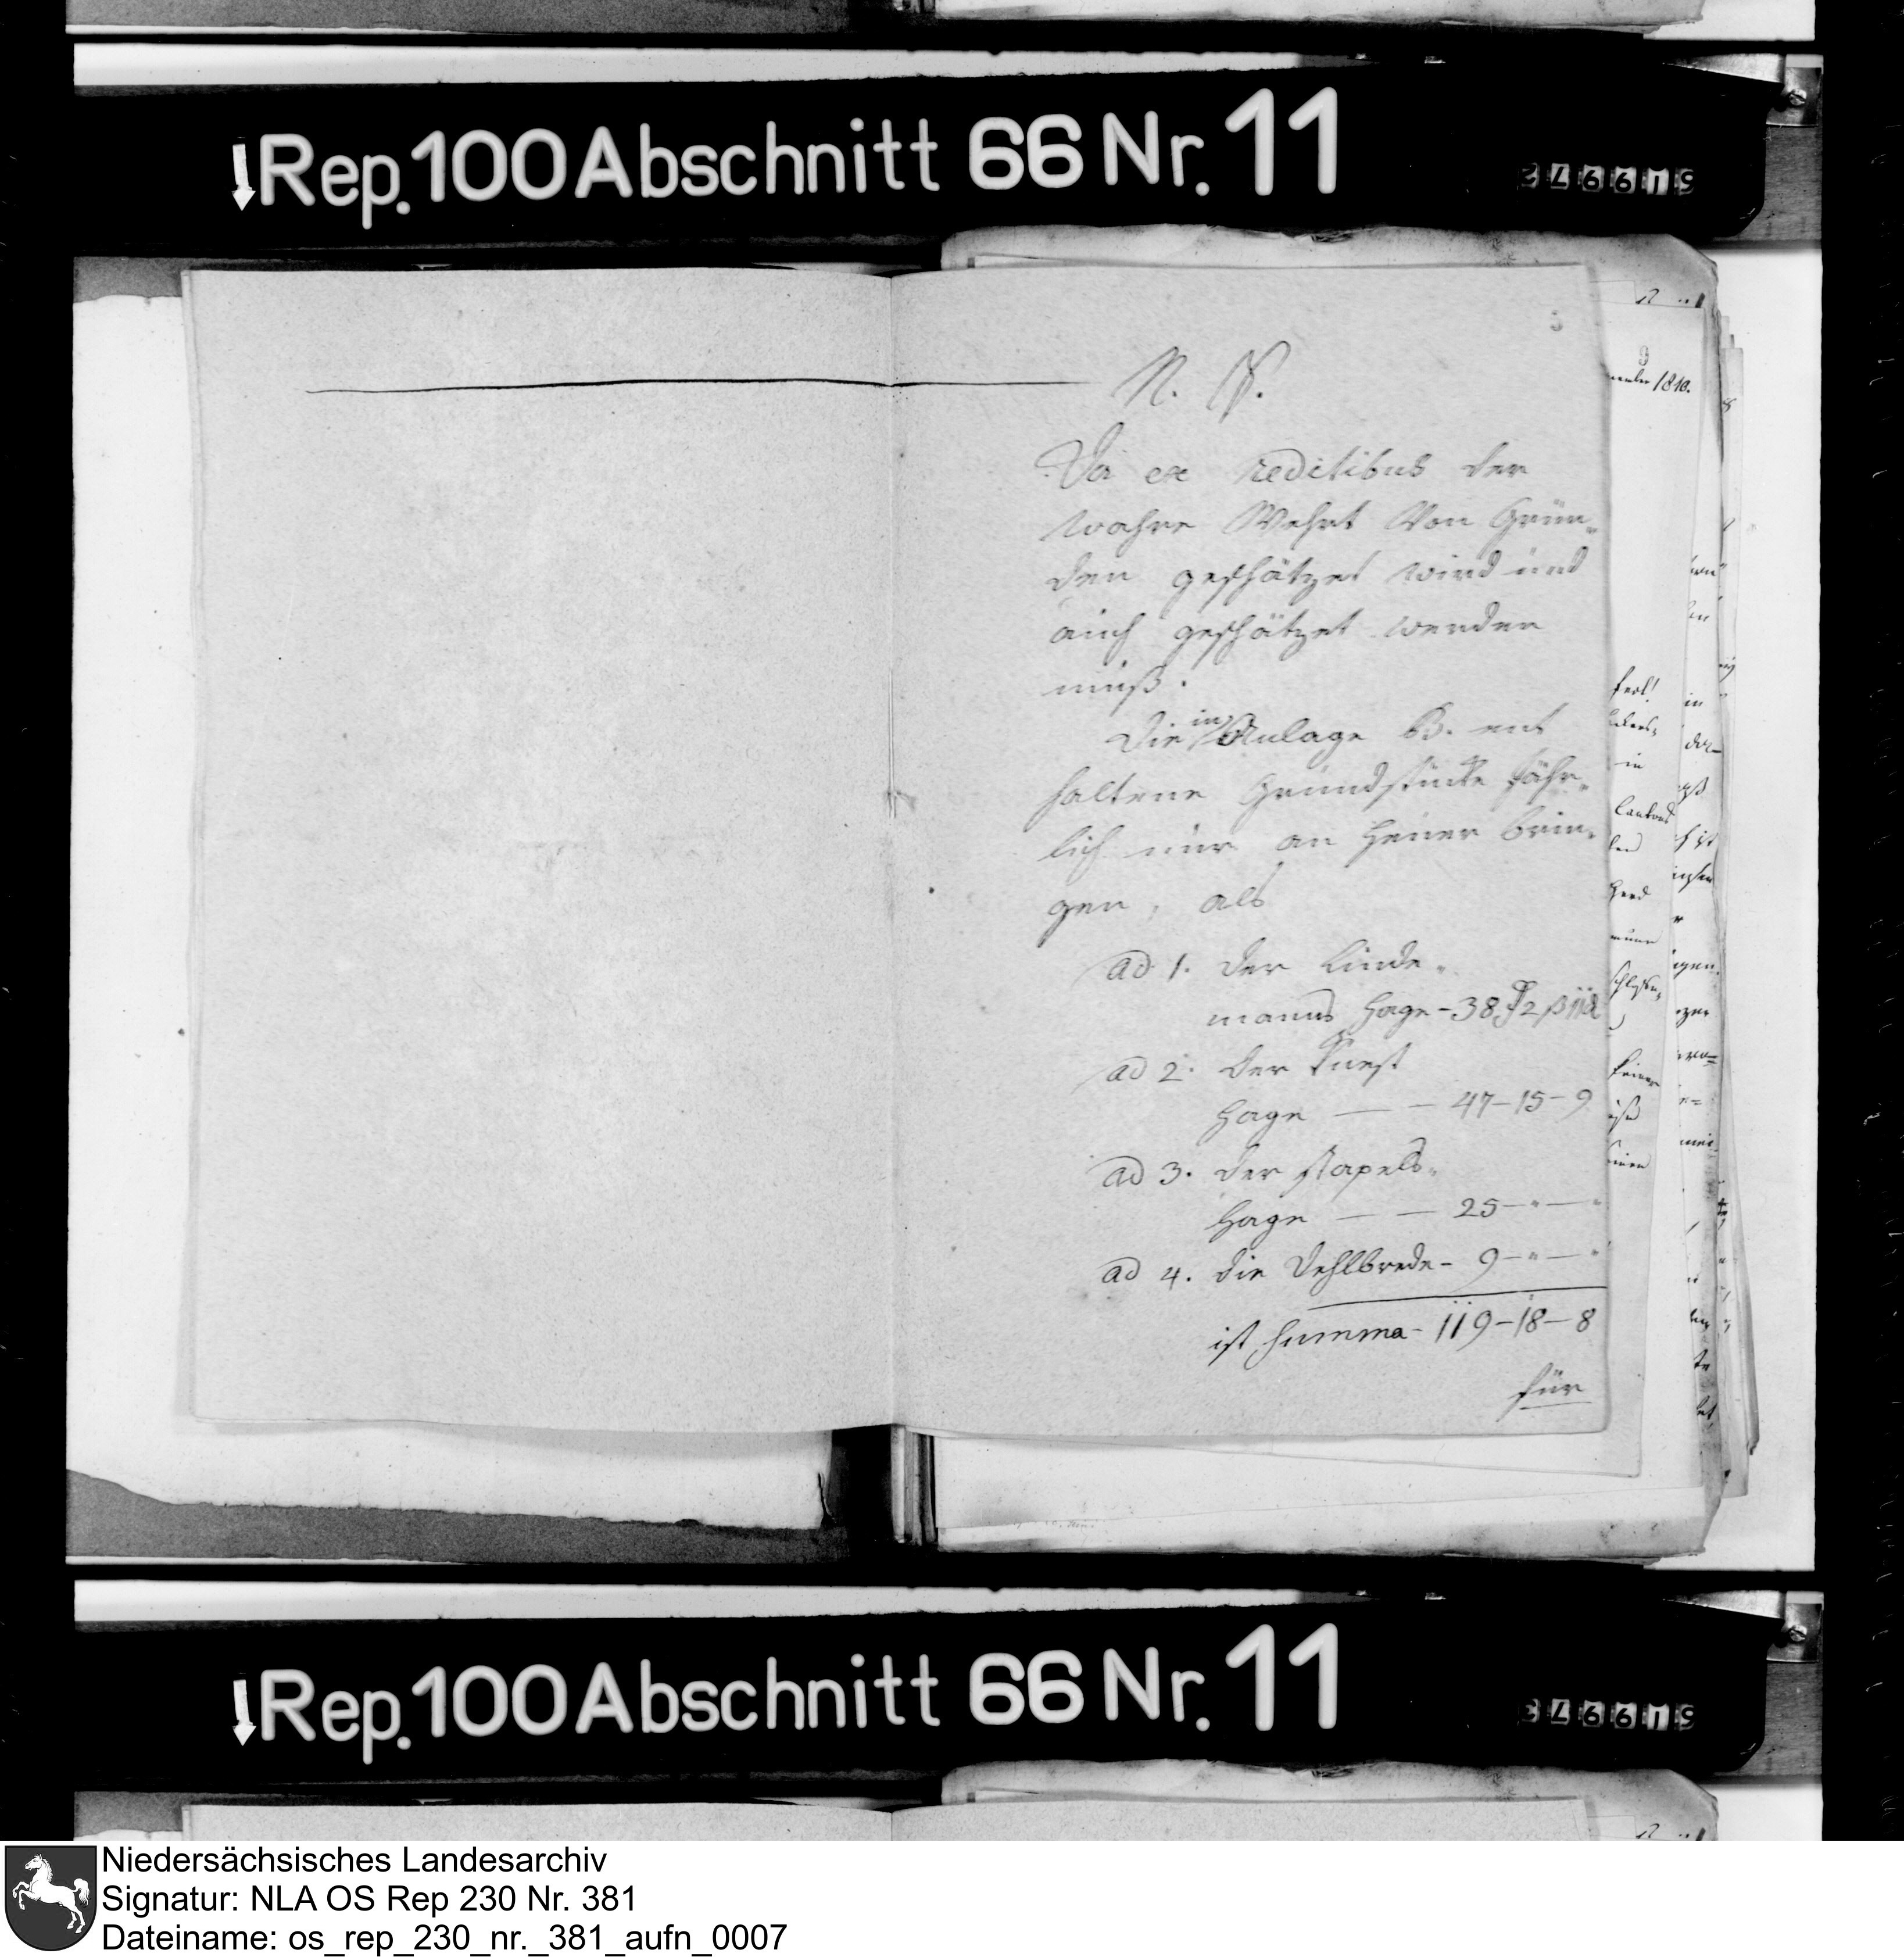 Rep. 100 Abschnitt 66 Nr. 11
519973
5
N. N.
Da ex reditibus der
wahre Wehrt von Grün-
den geschätzet wird und
auch geschätzet werden
muß.
die in Anlage B. ent
haltene Grundstücke jähr-
lich nur an Heuer brin-
gen, als
ad 1. der Linde-
manns Hage - 38 2 ß 11
ad 2. der
Hage — — 47 - 15 - 9
ad 3. der Stapels-
Hage — — 25 — " — "
ad 4. die Dehlbrede - 9 — " — "
ist Summa - 119 - 18 - 8
für
9
1810.
Rep. 100 Abschnitt 66 Nr. 11
Niedersächsisches Landesarchiv
Signatur: NLA OS Rep 230 Nr. 381
Dateiname: os_rep_230_nr._381_aufn_0007